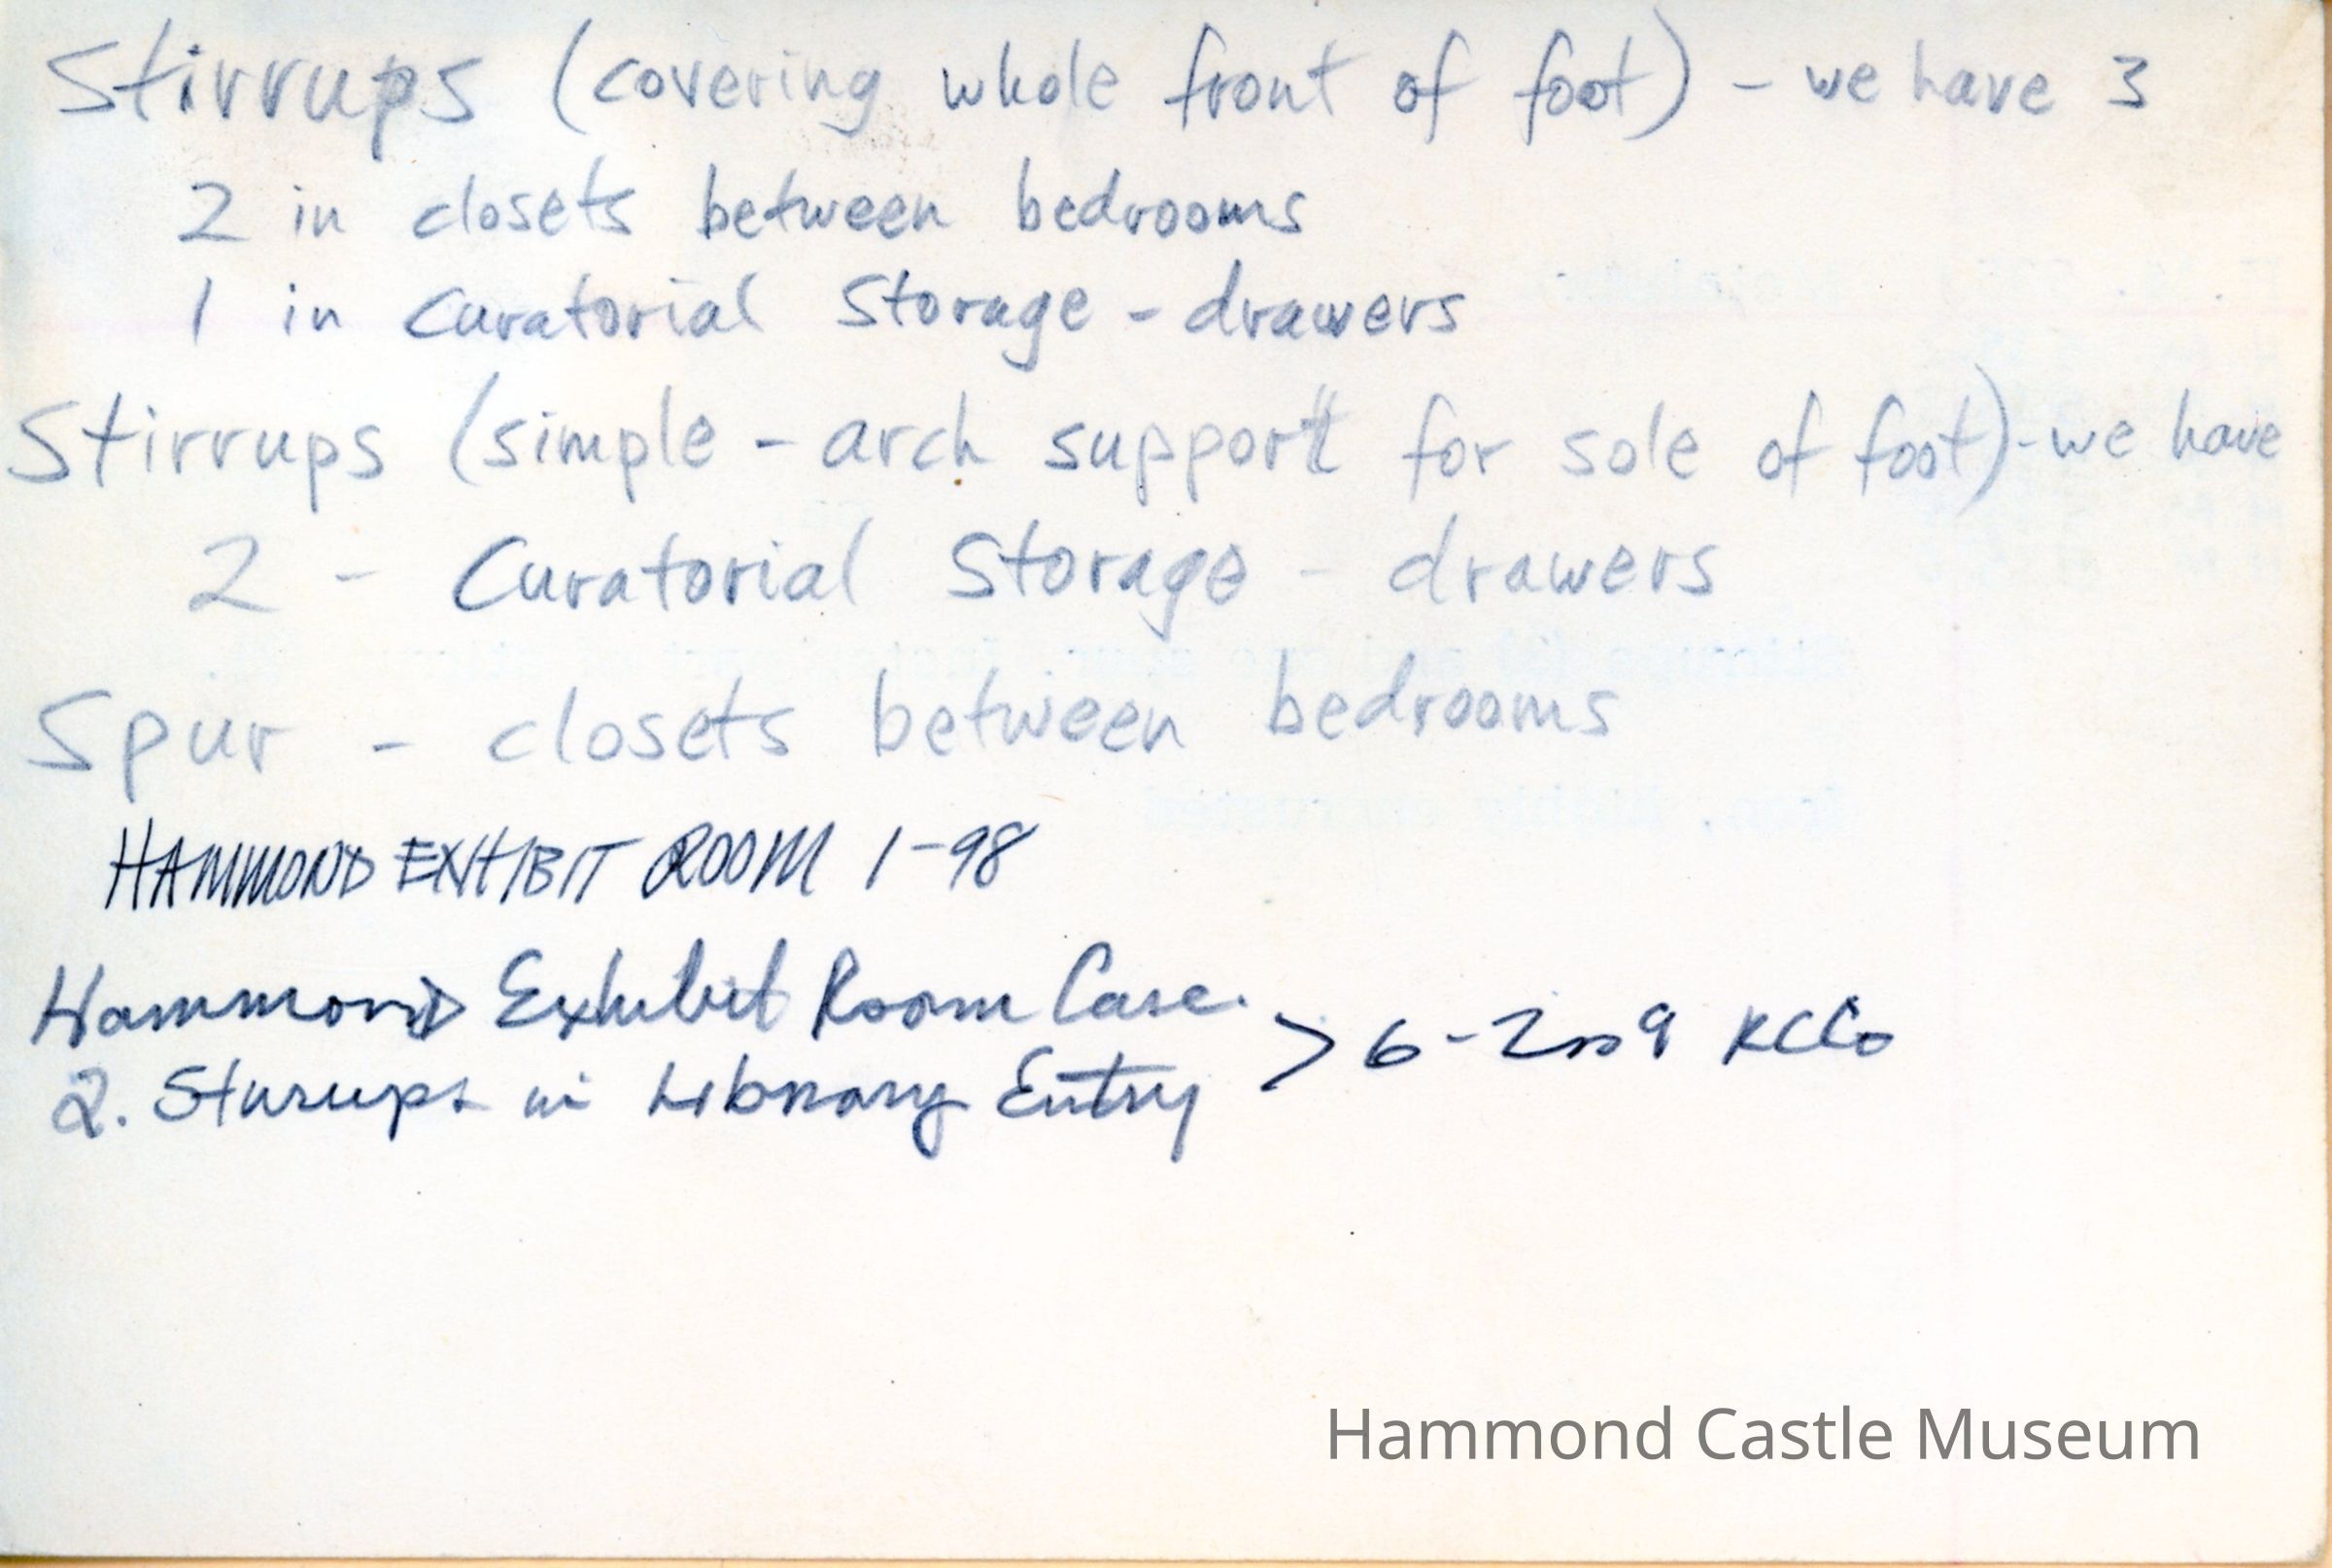 Stirrups (covering whole front of foot) - we have 3
2 in closets between bedrooms
1 in Curatorial Storage - drawers
Stirrups (simple - arch support for sole of foot) - we have
2 - Curatorial Storage - drawers
Spur - closets between bedrooms
HAMMOND EXHIBIT ROOM 1-98
Hammond Exhibit Room Case.
2. Stirrups in Library Entry > 6-2009
Hammond Castle Museum